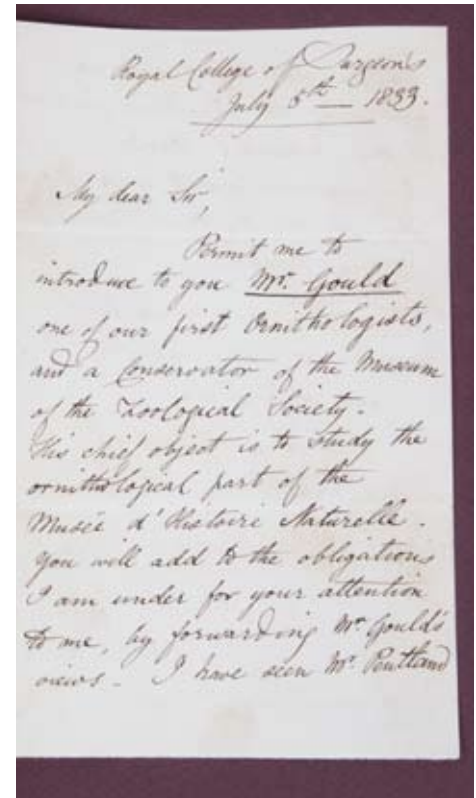 Royal College of Surgeons
July 5th — 1833.
My dear Sir,
Permit me to
introduce to you Mr. Gould
one of our first Ornithologists,
and a Conservator of the Museum
of the Zoological Society.
His chief object is to study the
ornithological part of the
Museé d'Histoire Naturelle.
You will add to the obligations
I am under for your attention
to me, by forwarding Mr. Gould's
views. I have seen Mr. Pentland